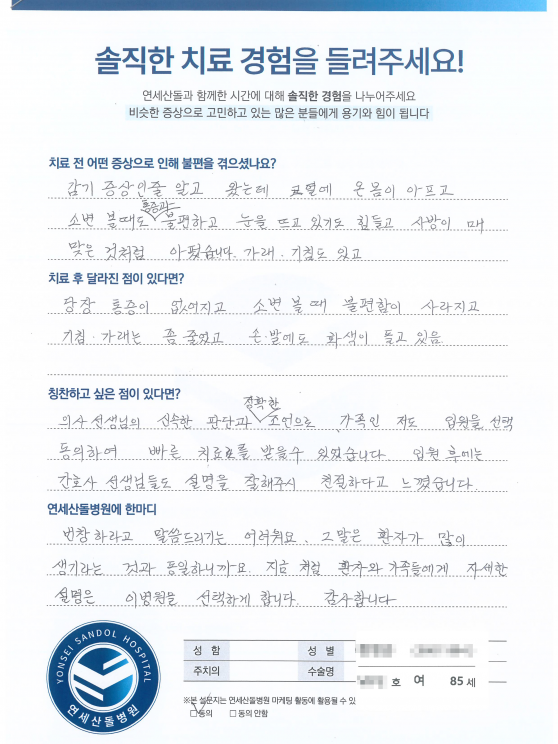 솔직한 치료 경험을 들려주세요!
연세산돌과 함께한 시간에 대해 솔직한 경험을 나누어주세요
비슷한 증상으로 고민하고 있는 많은 분들에게 용기와 힘이 됩니다
치료 전 어떤 증상으로 인해 불편을 겪으셨나요?
감기 증상인줄 알고 왔는데 고열에 온몸이 아프고
통증과
소변 볼때도 불편하고 눈을 뜨고 있기도 힘들고 사방이 매
맞은 것처럼 아팠습니다. 가래. 기침도 있고
치료 후 달라진 점이 있다면?
당장 통증이 없어지고 소변 볼 때 불편함이 사라지고
기침. 가래는 좀 줄었고 손.발에도 화색이 돌고 있음
칭찬하고 싶은 점이 있다면?
정확한
의사 선생님의 신속한 판단과 조언으로 가족인 저도 입원을 선택
동의하여 빠른 치료를 받을수 있었습니다. 입원 후에는
간호사 선생님들도 설명을 잘해주시 친절하다고 느꼈습니다.
연세산돌병원에 한마디
번창하라고 말씀드리기는 어려워요. 그말은 환자가 많이
생기라는 것과 동일하니까요. 지금 처럼 환자와 가족들에게 자세한
설명은 이병원을 선택하게 합니다. 감사합니다
YONSEI SANDOL HOSPITAL
연세산돌병원
성 함 성 별
주치의 수술명 호 여 85세
※본 설문지는 연세산돌병원 마케팅 활동에 활용될 수 있
☑동의 □동의 안함